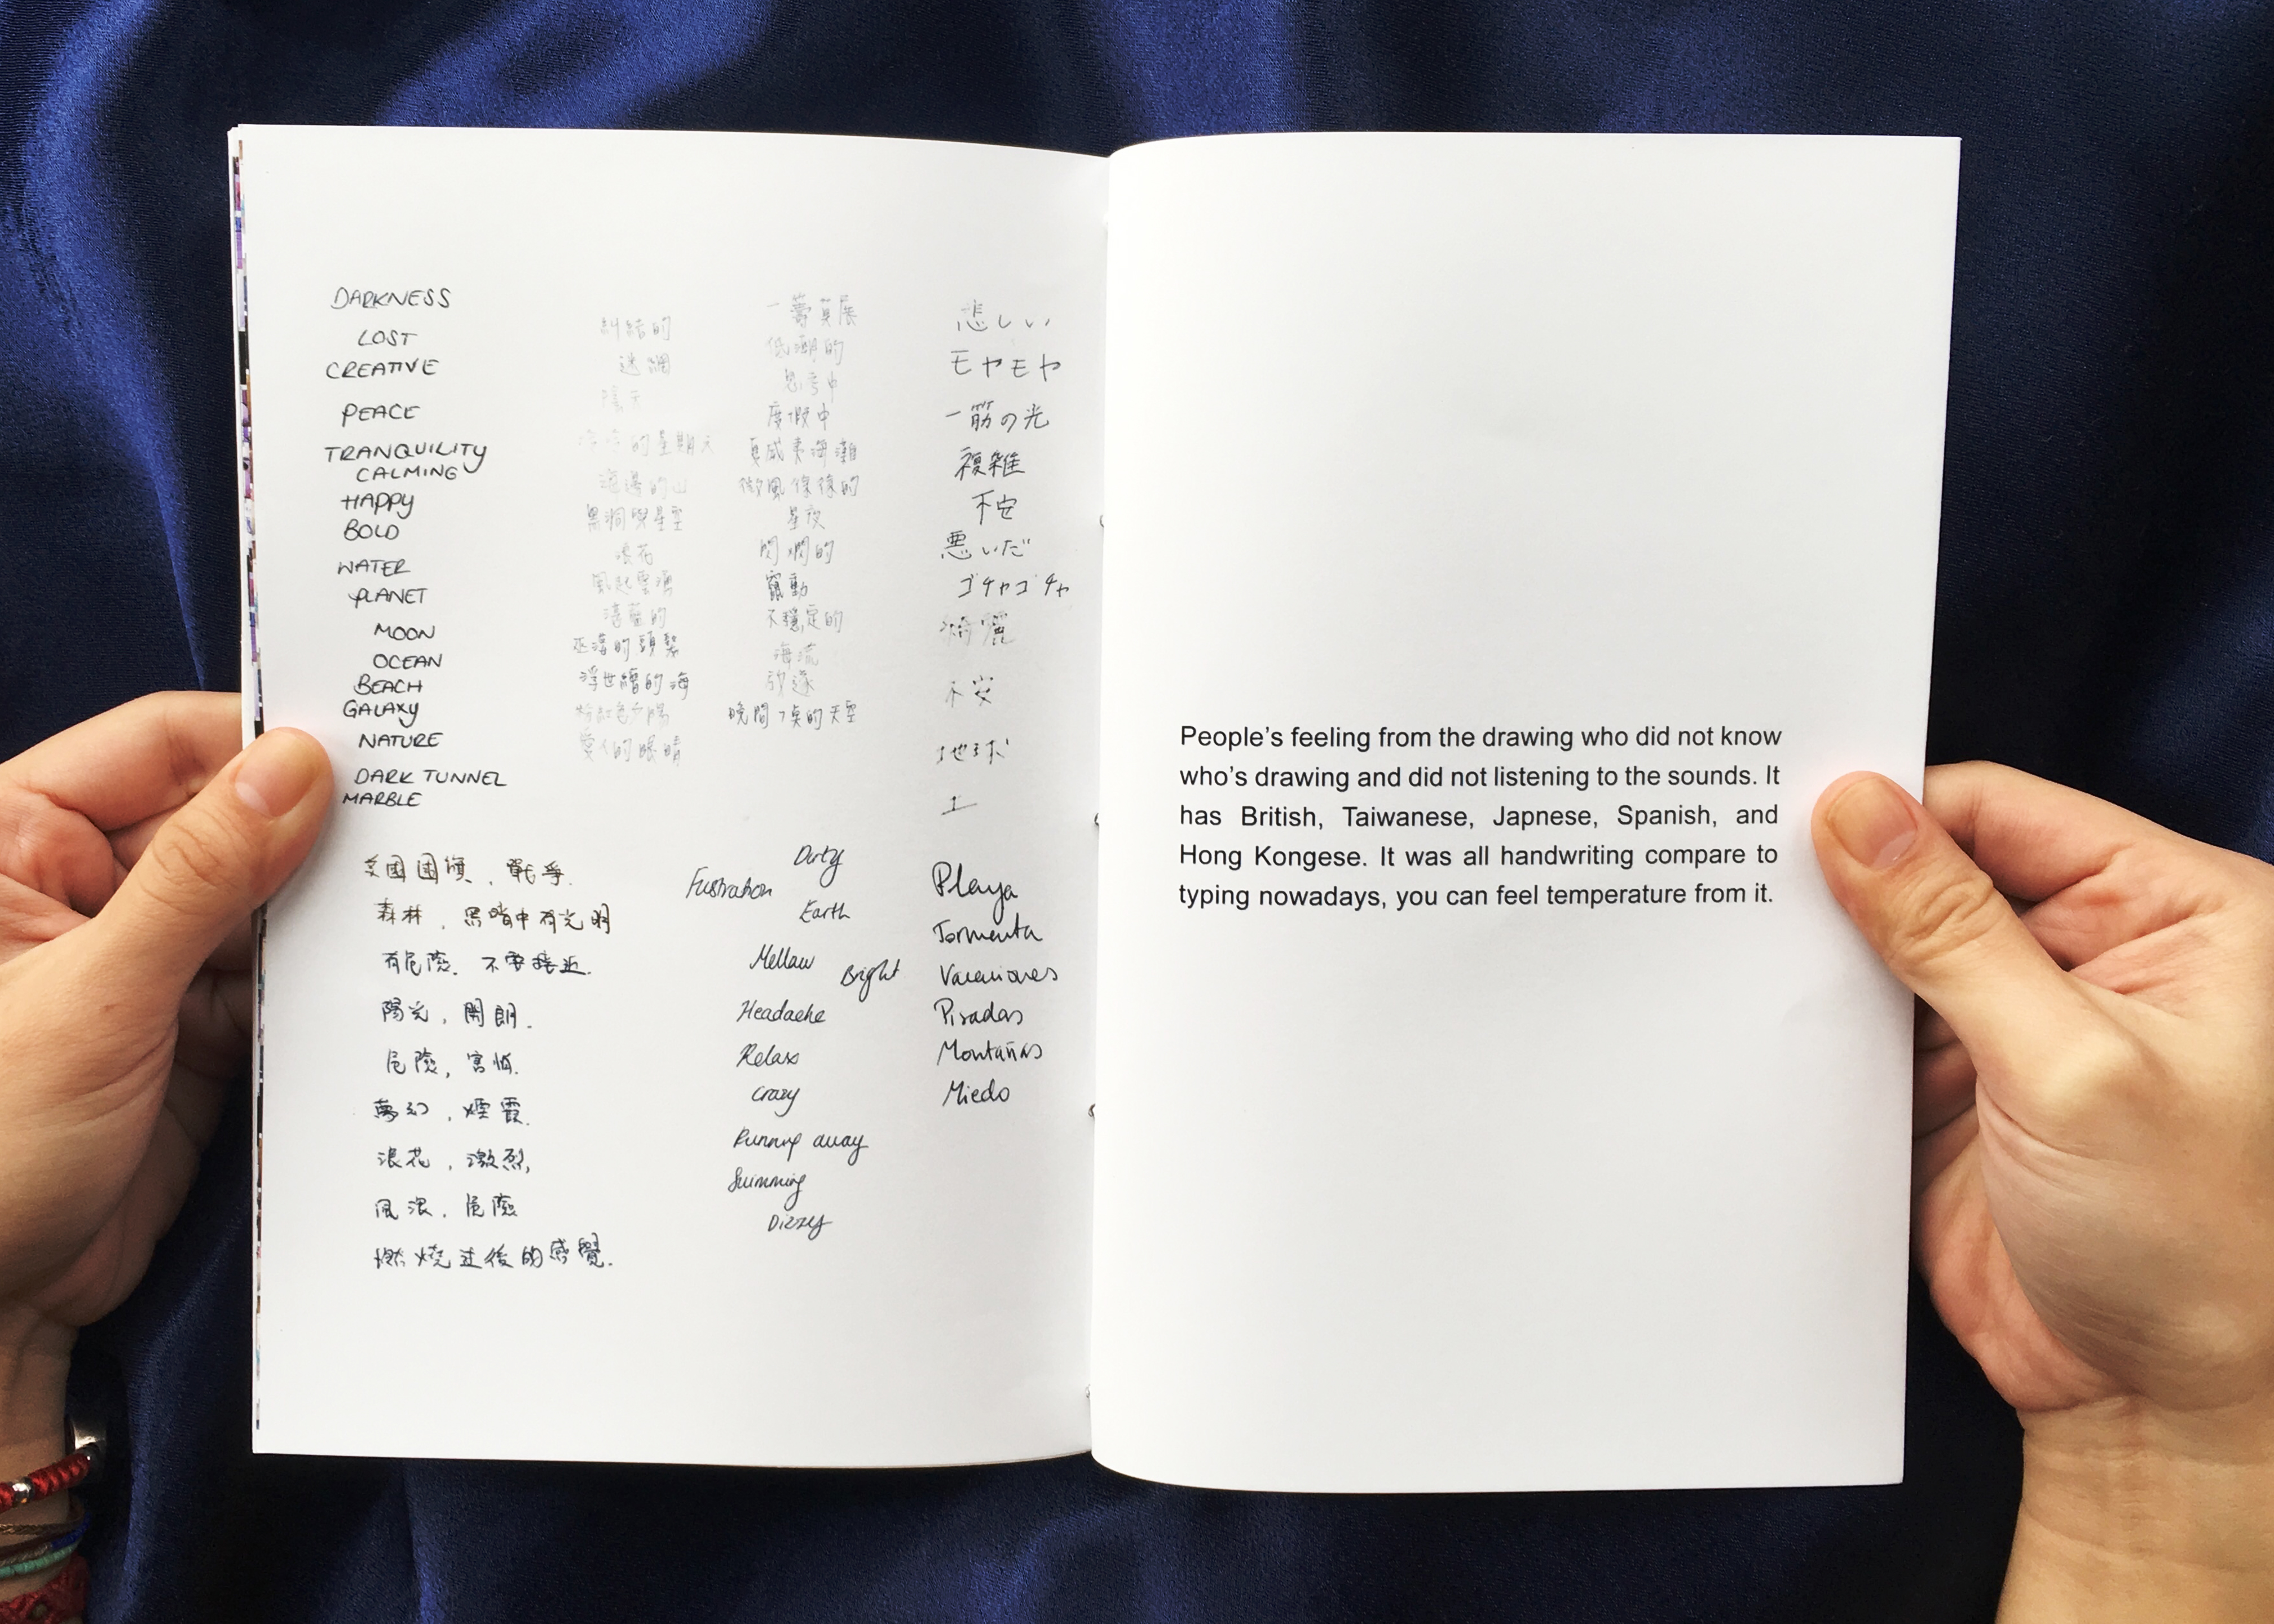 DARKNESS
LOST
CREATIVE
PEACE
TRANQUILITY
CALMING
HAPPY
BOLD
WATER
PLANET
MOON
OCEAN
BEACH
GALAXY
NATURE
DARK TUNNEL
MARBLE
糾結的
迷網
陰天
的星期天
黑洞與星空
浪花
風起雲湧
浮世繪的海
粉紅色夕陽
愛人的眼睛
一籌莫展
低潮的
思考中
度假中
夏威夷海灘
微風徐徐的
星夜
閃爍的
竄動
不穩定的
海流
放逐
晚間的天空
悲しい
モヤモヤ
一筋の光
複雑
不安
悪いだ
ゴチャゴチャ
綺麗
不安
地球
土
英國國旗、戰爭.
森林、黑暗中有光明
有危險、不要接近.
陽光、開朗.
危險，害怕.
夢幻，煙霞.
浪花，激烈,
風浪，危險
燃燒过後的感覺.
Dirty
Fustration
Earth
Mellaw
Bright
Headache
Relax
Crazy
Running away
Swimming
Dizzy
Playa
Tormenta
Vacaciones
Pisadas
Montañas
Miedo
People's feeling from the drawing who did not know
who's drawing and did not listening to the sounds. It
has British, Taiwanese, Japnese, Spanish, and
Hong Kongese. It was all handwriting compare to
typing nowadays, you can feel temperature from it.